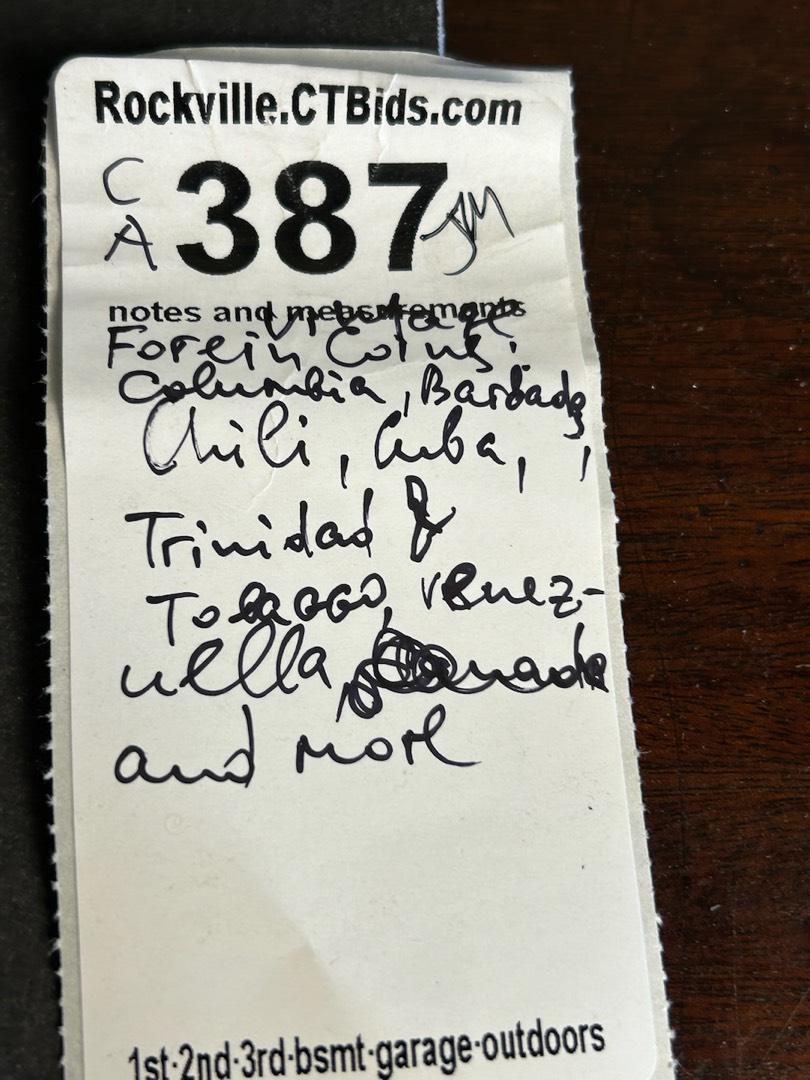 Rockville.CTBids.com
C
A 387 JM
notes and measurements
Vintage
Forein Coins:
Columbia, Barbados
Chili, Cuba, ,
Trinidad &
Tobaggo, Venez-
uella, Canada
and more
1st·2nd·3rd·bsmt·garage·outdoors